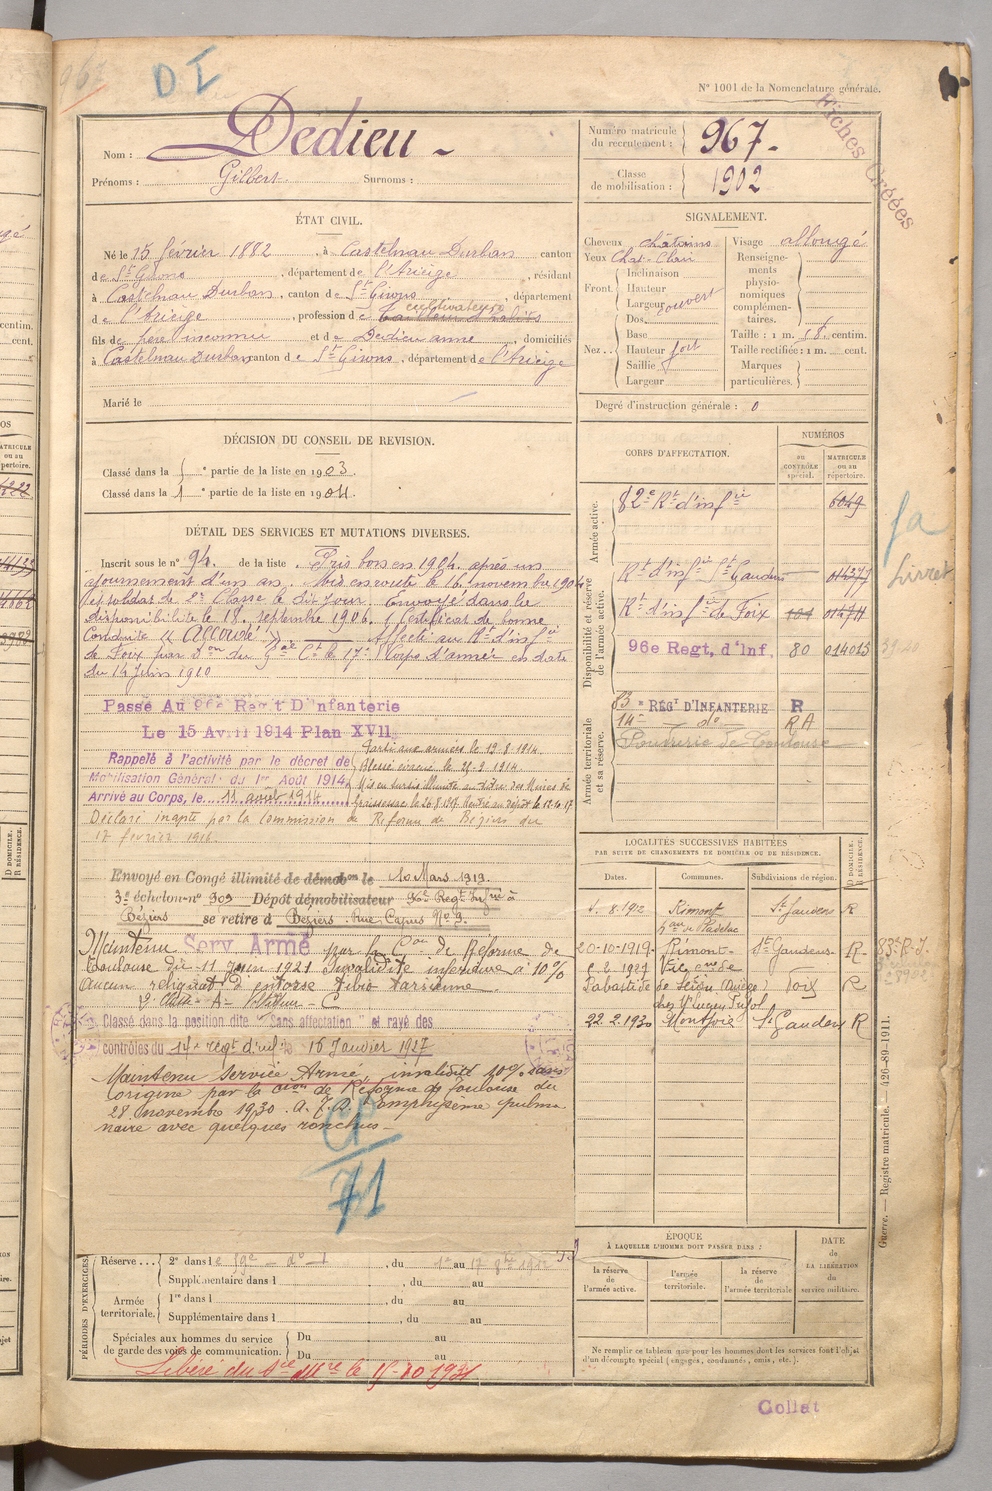 D I
N° 1001 de la Nomenclature générale.
Fiches Créées
Nom : Dedieu
Prénoms : Gilbert Surnoms :
Numéro matricule du recrutement : 967
Classe de mobilisation : 1902
ÉTAT CIVIL.
Né le 15 février 1882, à Castelnau Durban canton
de St Girons, département de l'Ariège, résidant
à Castelnau Durban, canton de St Girons, département
de l'Ariège, profession de cultivateur
fils de père inconnu et de Dedieu anne, domiciliés
à Castelnau Durban canton de St Girons, département de l'Ariège
Marié le
SIGNALEMENT.
Cheveux châtains
Yeux Chat-Clair
Front. Inclinaison
Hauteur
Largeur couvert
Nez.. Dos
Base
Hauteur fort
Saillie
Largeur
Visage allongé
Renseignements physionomiques complémentaires.
Taille : 1 m. 68. centim.
Taille rectifiée : 1 m. cent.
Marques particulières.
Degré d'instruction générale : 0
DÉCISION DU CONSEIL DE REVISION.
Classé dans la ° partie de la liste en 1903.
Classé dans la 1 ° partie de la liste en 1904.
DÉTAIL DES SERVICES ET MUTATIONS DIVERSES.
Inscrit sous le n° 94. de la liste. Pris bon en 1904. après un
ajournement d'un an. Mis en route le 16 novembre 1904
et soldat de 2e Classe le dit jour. Envoyé dans la
disponibilité le 18 septembre 1906. Certificat de bonne
Conduite « Accordé ». Affecté au Rt d'infie
de Foix par Don du Gal Ct le 17e Corps d'armée en date
du 14 Juin 1910
Passé Au 96e Regt D'Infanterie
Le 15 Avril 1914 Plan XVII
Rappelé à l'activité par le décret de
Mobilisation Générale du 1er Août 1914
Arrivé au Corps, le 11 août 1914
Parti aux armées le 19.8.1914.
Mis en sursis illimité au titre des Mines de
Graissessac le 26.8.1917. Rentré au dépôt le 12.10.17
Déclaré inapte par la Commission de Réforme de Béziers du
17 février 1918.
Envoyé en Congé illimité de démobon le 10 Mars 1919.
3e échelon n° 909 Dépôt démobilisateur 96e Regt Infrie à
Béziers se retire à Béziers
Maintenu Serv Armé par la Con de Réforme de
Toulouse du 11 juin 1921 Invalidité inférieure à 10%
Aucun reliquat d'entorse tibio tarsienne
Classé dans la position dite "Sans affectation" et rayé des
contrôles du 14e régt d'infie 15 Janvier 1927
Maintenu service Armé, invalidité 10% sans
origine par la Con de Réforme de Toulouse du
28 novembre 1930. Emphysème pulmo
naire avec quelques ronchus
71
CORPS D'AFFECTATION.
NUMÉROS
au CONTRÔLE spécial.
MATRICULE ou au répertoire.
Armée active.
82e Rt d'infie 6049
Disponibilité et réserve de l'armée active.
Rt d'infie St Gaudens
Rt d'infie de Foix 104
96e Regt, d'Inf. 80 014015
Armée territoriale et sa réserve.
83e RÉGT D'INFANTERIE R
14e do RA
Poudrerie de Toulouse
Livret
LOCALITÉS SUCCESSIVES HABITÉES
PAR SUITE DE CHANGEMENTS DE DOMICILE OU DE RÉSIDENCE.
Dates. Communes. Subdivisions de région. D DOMICILE. R RÉSIDENCE.
1.8.1912 Rimont St Gaudens R
20-10-1919 Rimont St Gaudens R
Labastide de Sérou (Ariège) Foix R
22.2.1930 Montjoie St Gaudens R
Guerre. — Registre matricule. — 426-89-1911.
PÉRIODES D'EXERCICES.
Réserve... 2e dans le 59e do, du au
Supplémentaire dans l , du au
Armée territoriale. 1re dans l , du au
Supplémentaire dans l , du au
Spéciales aux hommes du service de garde des voies de communication. Du au
Du au
Libéré du Sce Mre le 15-10-1931
ÉPOQUE
À LAQUELLE L'HOMME DOIT PASSER DANS :
la réserve de l'armée active.
l'armée territoriale.
la réserve de l'armée territoriale
DATE de LA LIBÉRATION du service militaire.
Ne remplir ce tableau que pour les hommes dont les services font l'objet
d'un décompte spécial (engagés, condamnés, omis, etc.).
Collat